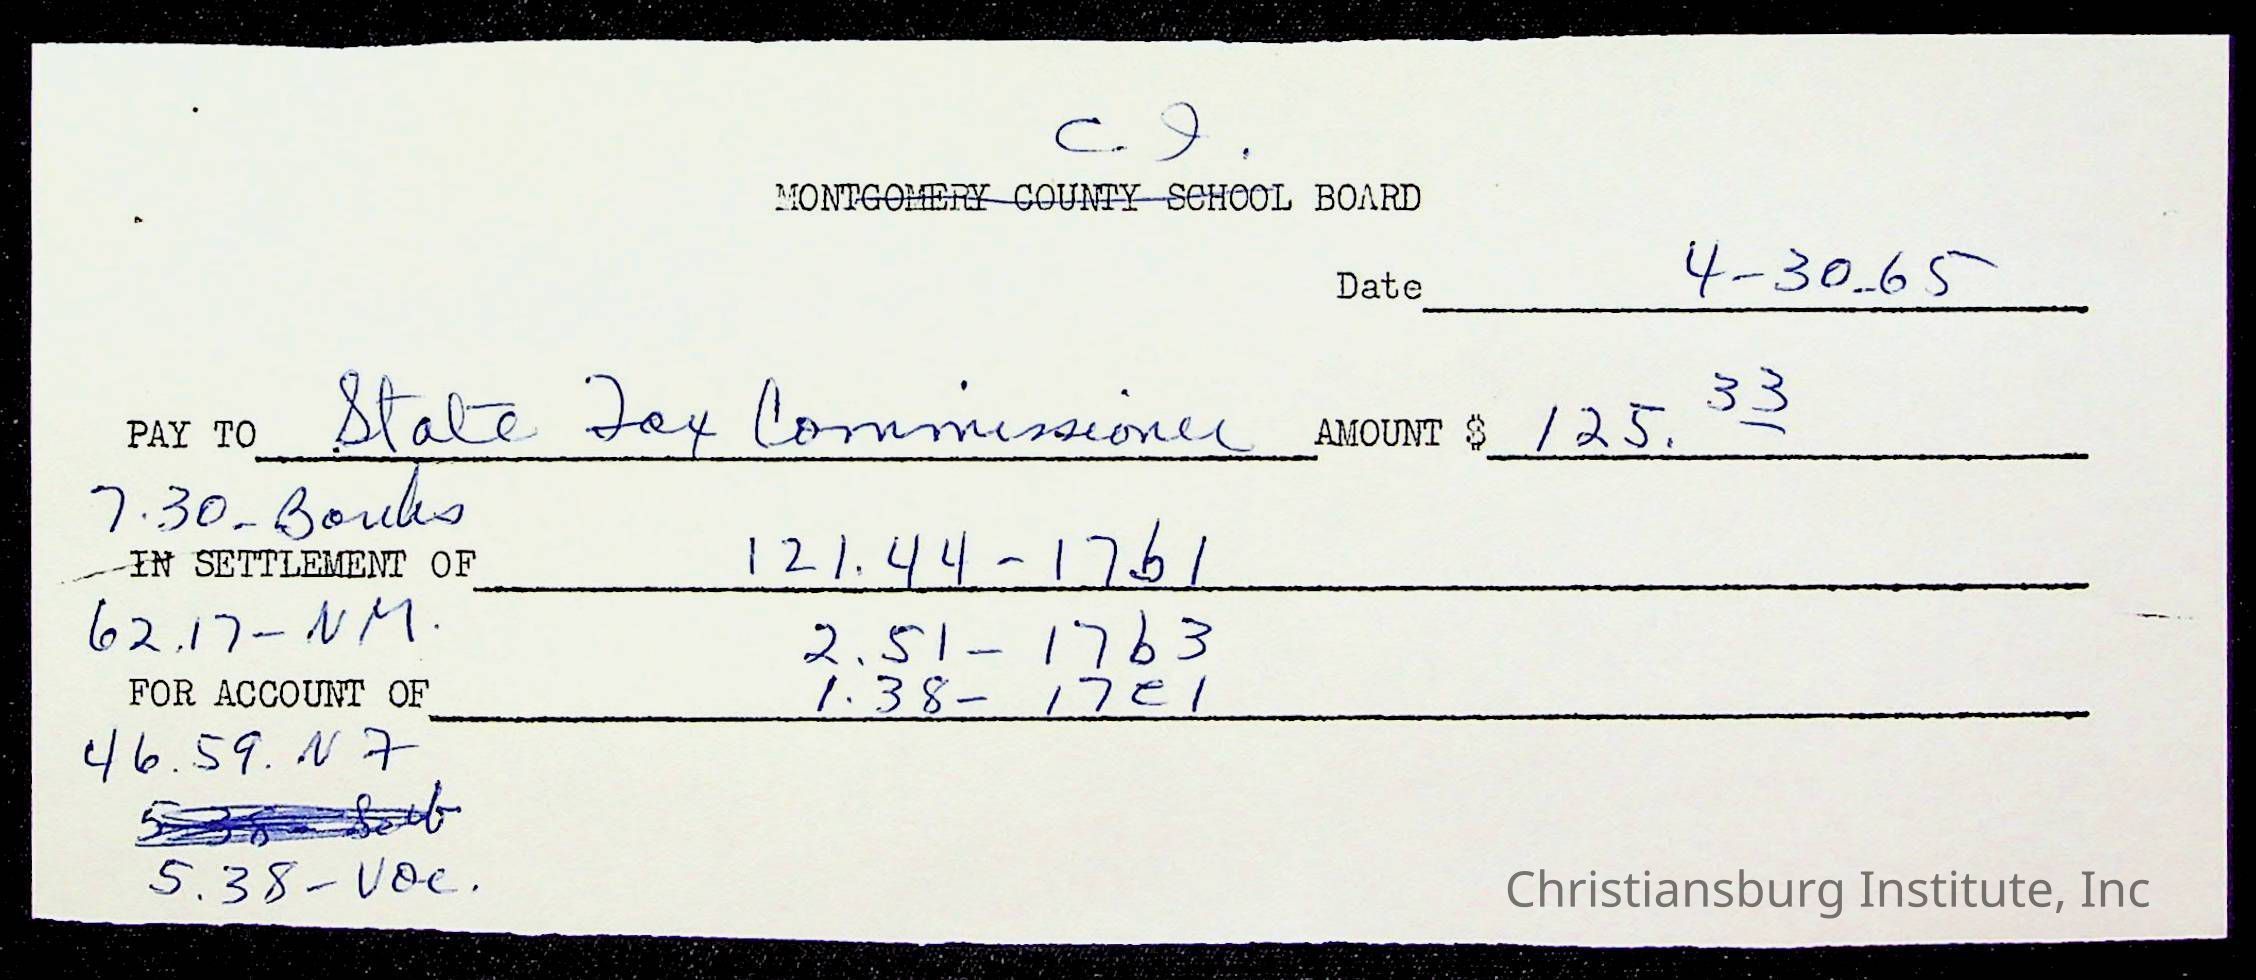 C. I.
MONTGOMERY COUNTY SCHOOL BOARD
Date 4-30-65
PAY TO State Tax Commissioner AMOUNT $ 125.33
7.30-Banks
IN SETTLEMENT OF 121.44-17b1
62.17-NM. 2.51-17b3
FOR ACCOUNT OF 1.38-17c1
46.59.N7
5.38-Voc.
Christiansburg Institute, Inc